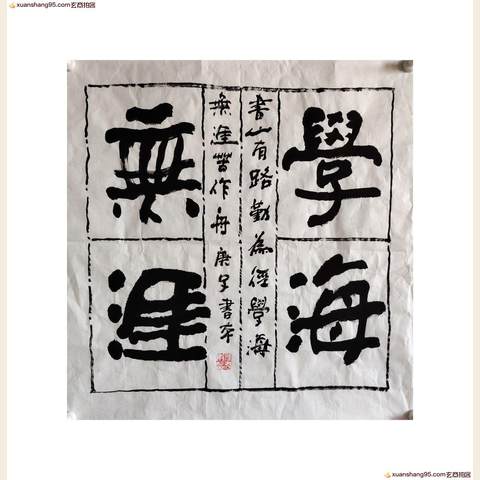 xuanshang95.com玄商拍客
學海
無涯
書山有路勤為徑學海
無涯苦作舟 庚子書
xuanshang95.com玄商拍客